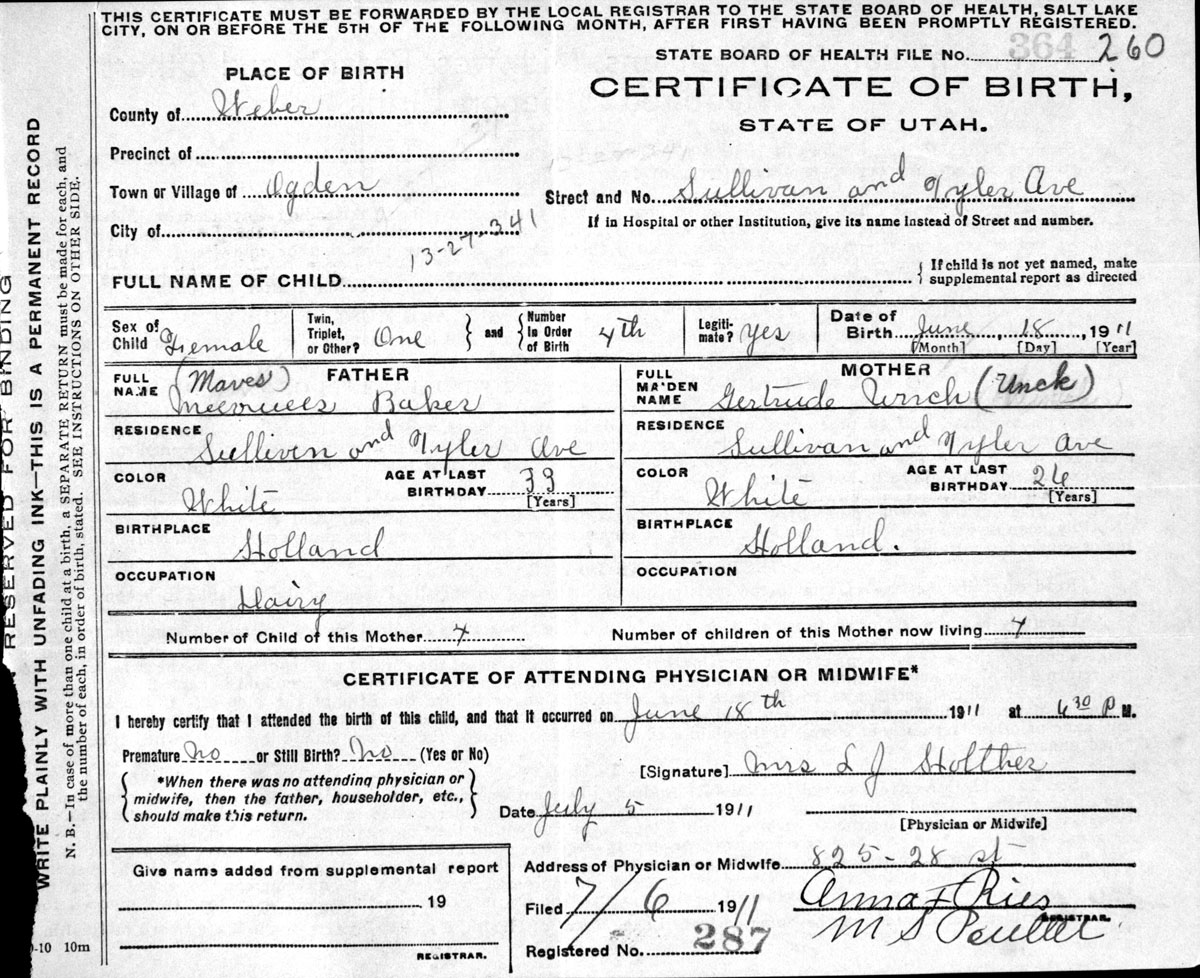 THIS CERTIFICATE MUST BE FORWARDED BY THE LOCAL REGISTRAR TO THE STATE BOARD OF HEALTH, SALT LAKE
CITY, ON OR BEFORE THE 5TH OF THE FOLLOWING MONTH, AFTER FIRST HAVING BEEN PROMPTLY REGISTERED.
STATE BOARD OF HEALTH FILE No. 364 260
PLACE OF BIRTH
CERTIFICATE OF BIRTH,
STATE OF UTAH.
County of Weber
Precinct of
Town or Village of Ogden
Street and No. Sullivan and Tyler Ave
If in Hospital or other Institution, give its name instead of Street and number.
City of
13-27-341
FULL NAME OF CHILD
{ If child is not yet named, make
supplemental report as directed
Sex of Child Female
Twin, Triplet, or Other? One } and { Number In Order of Birth 4th
Legitimate? Yes
Date of Birth June, 18, 1911
[Month] [Day] [Year]
FATHER
FULL NAME (Maves)
Baker
RESIDENCE
Sulliven and Tyler Ave
COLOR White
AGE AT LAST BIRTHDAY 33
[Years]
BIRTHPLACE
Holland
OCCUPATION
Dairy
MOTHER
FULL MAIDEN NAME Gertrude (Unck)
RESIDENCE
Sullivan and Tyler Ave
COLOR White
AGE AT LAST BIRTHDAY 26
[Years]
BIRTHPLACE
Holland.
OCCUPATION
Number of Child of this Mother 4
Number of children of this Mother now living 4
CERTIFICATE OF ATTENDING PHYSICIAN OR MIDWIFE*
I hereby certify that I attended the birth of this child, and that it occurred on June 18th 1911 at 4 30 P M.
Premature no or Still Birth? No (Yes or No)
{ *When there was no attending physician or
midwife, then the father, householder, etc.,
should make this return. }
[Signature] Mrs L J Holther
Date July 5 1911
[Physician or Midwife]
Give name added from supplemental report
19
REGISTRAR.
Address of Physician or Midwife 825-28 st
Filed 7/6 1911
Anna F Ries
REGISTRAR.
M S
Registered No. 287
-10 10m
RESERVED FOR BINDING
WRITE PLAINLY WITH UNFADING INK—THIS IS A PERMANENT RECORD
N. B.—In case of more than one child at a birth, a SEPARATE RETURN must be made for each, and
the number of each, in order of birth, stated. SEE INSTRUCTIONS ON OTHER SIDE.